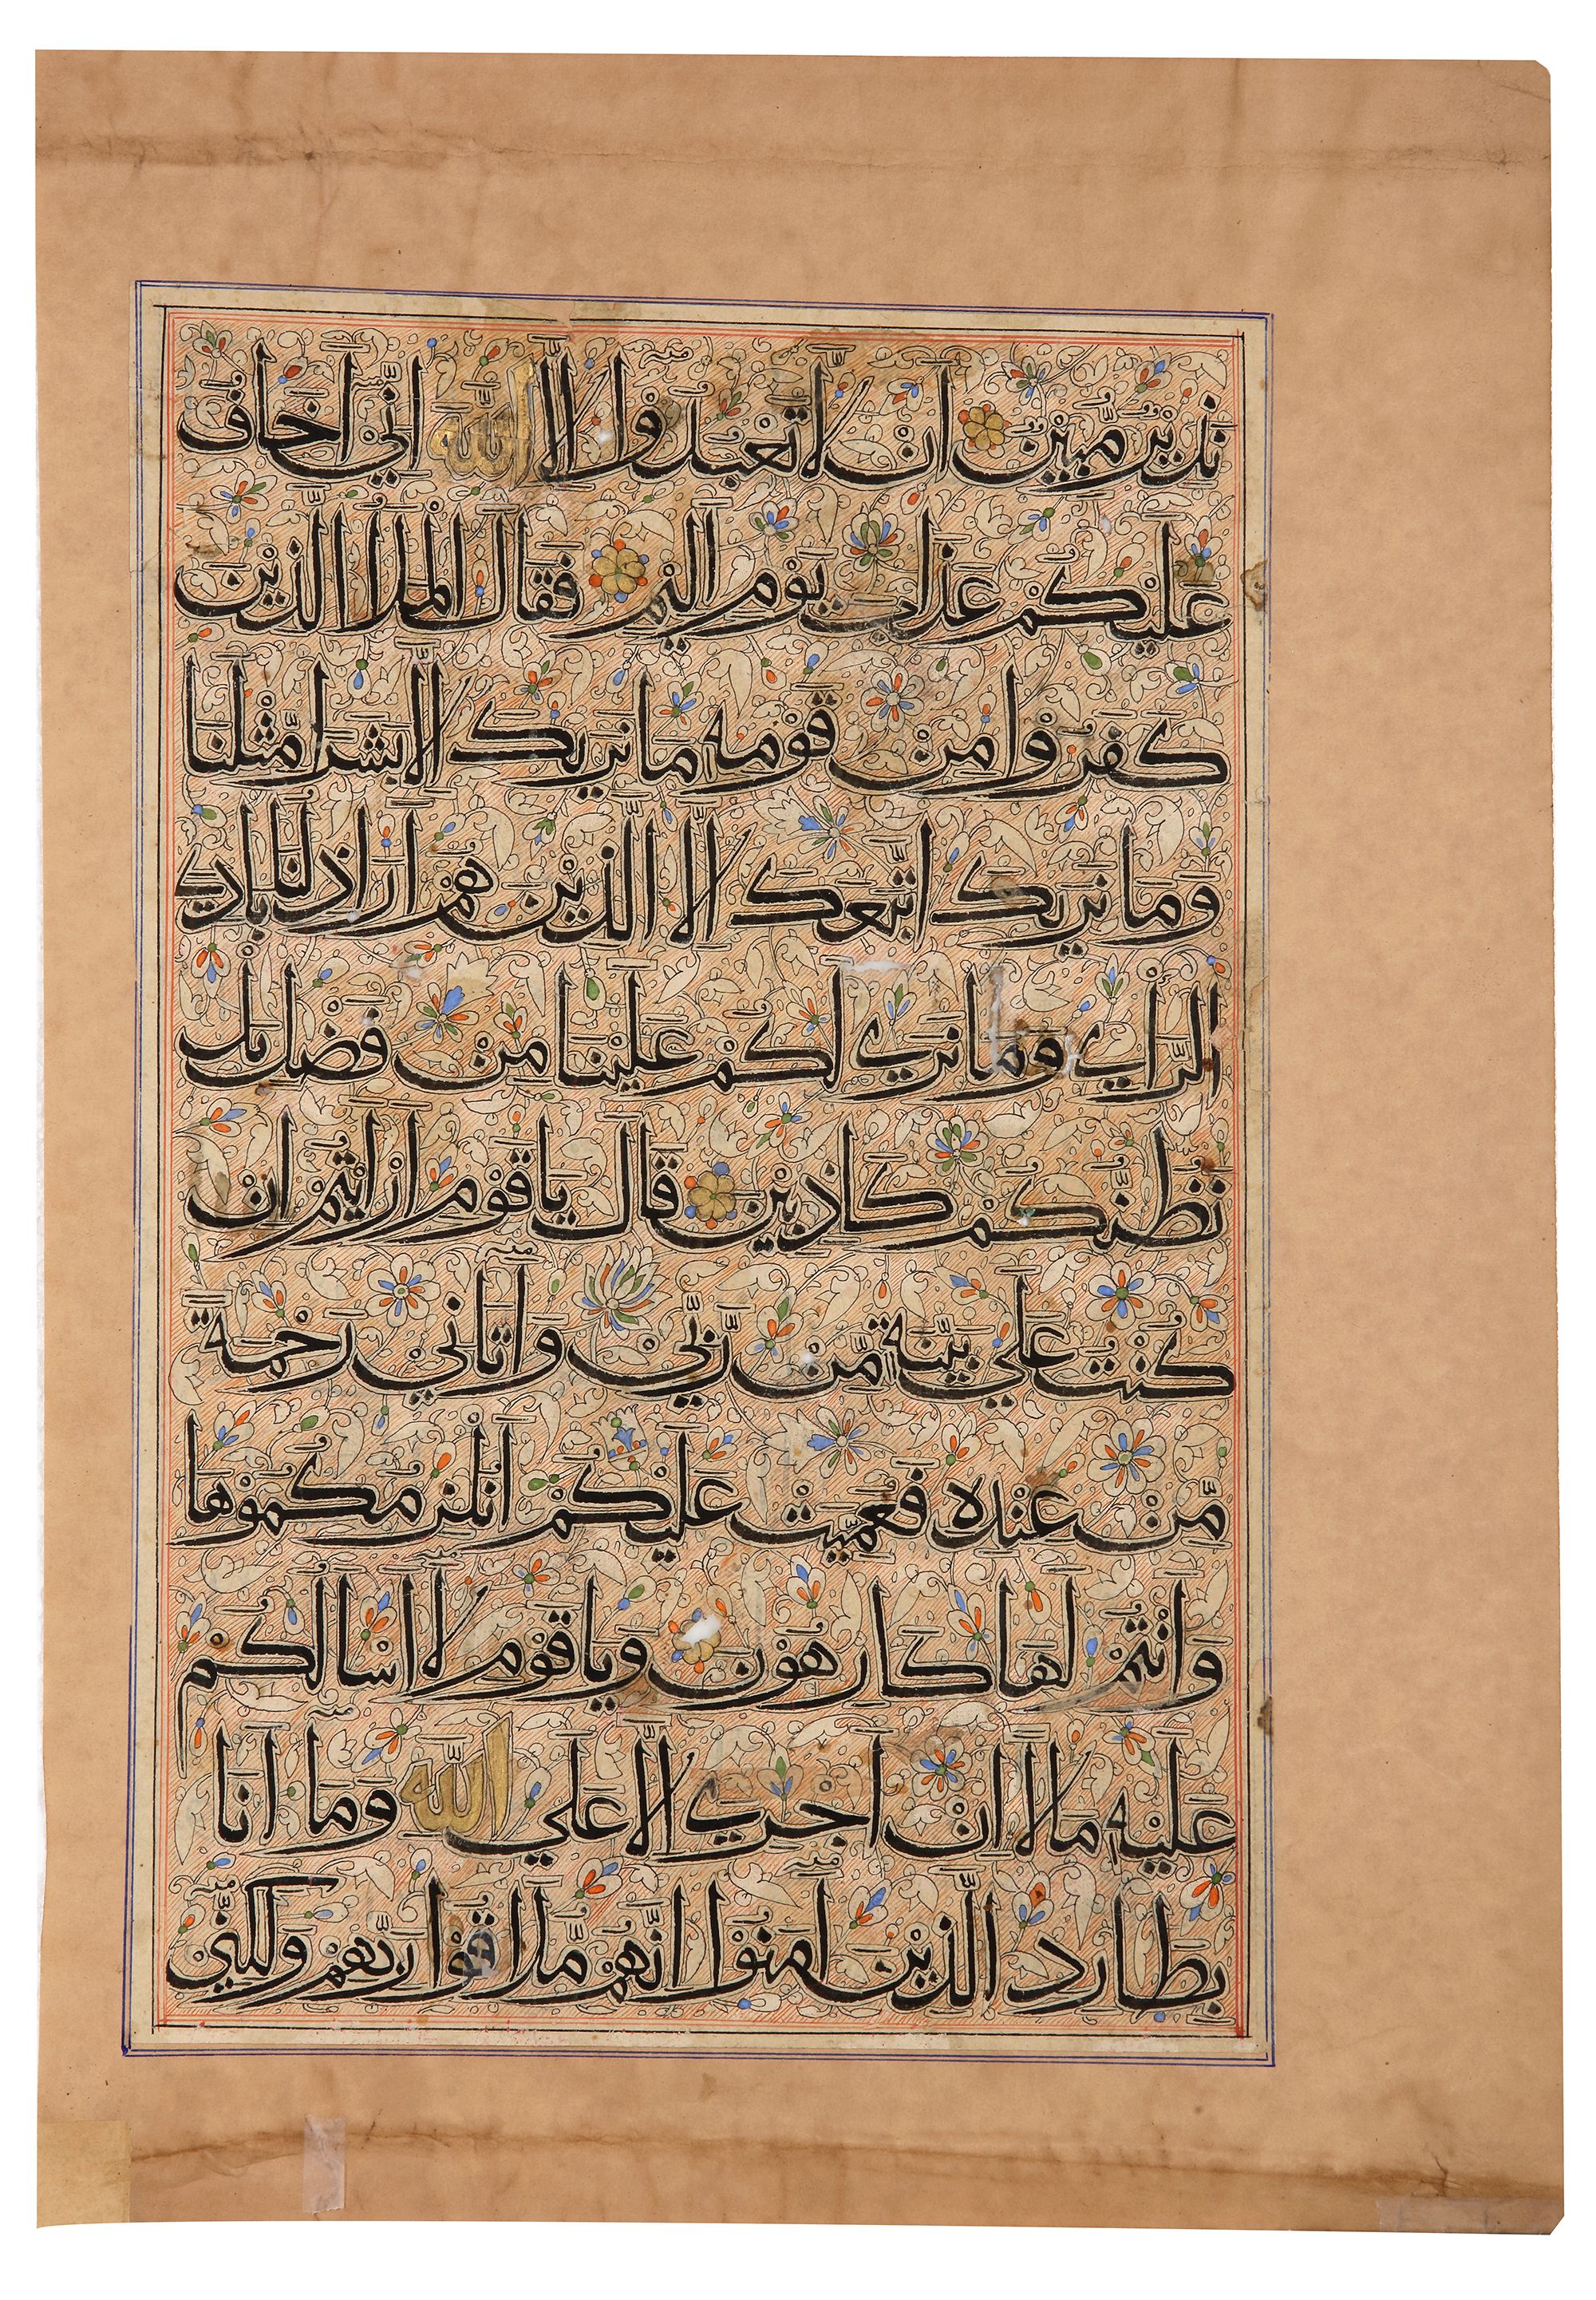 نَذِيْرٌ مُّبِيْنٌ اَنْ لَا تَعْبُدُوْا اِلَّا اللّٰهَ اِنِّيْ اَخَافُ
عَلَيْكُمْ عَذَابَ يَوْمٍ اَلِيْمٍ فَقَالَ الْمَلَاُ الَّذِيْنَ
كَفَرُوْا مِنْ قَوْمِهِ مَا نَرٰيكَ اِلَّا بَشَرًا مِّثْلَنَا
وَمَا نَرٰيكَ اتَّبَعَكَ اِلَّا الَّذِيْنَ هُمْ اَرَاذِلُنَا بَادِيَ
الرَّأْيِ وَمَا نَرٰي لَكُمْ عَلَيْنَا مِنْ فَضْلٍ بَلْ
نَظُنُّكُمْ كَاذِبِيْنَ قَالَ يَا قَوْمِ اَرَاَيْتُمْ اِنْ
كُنْتُ عَلٰي بَيِّنَةٍ مِّنْ رَّبِّيْ وَاٰتَانِيْ رَحْمَةً
مِّنْ عِنْدِهِ فَعُمِّيَتْ عَلَيْكُمْ اَنُلْزِمُكُمُوْهَا
وَاَنْتُمْ لَهَا كَارِهُوْنَ وَيَا قَوْمِ لَا اَسْاَلُكُمْ
عَلَيْهِ مَالًا اِنْ اَجْرِيَ اِلَّا عَلَي اللّٰهِ وَمَا اَنَا
بِطَارِدِ الَّذِيْنَ اٰمَنُوْا اِنَّهُمْ مُّلَاقُوْا رَبِّهِمْ وَلٰكِنِّيْ